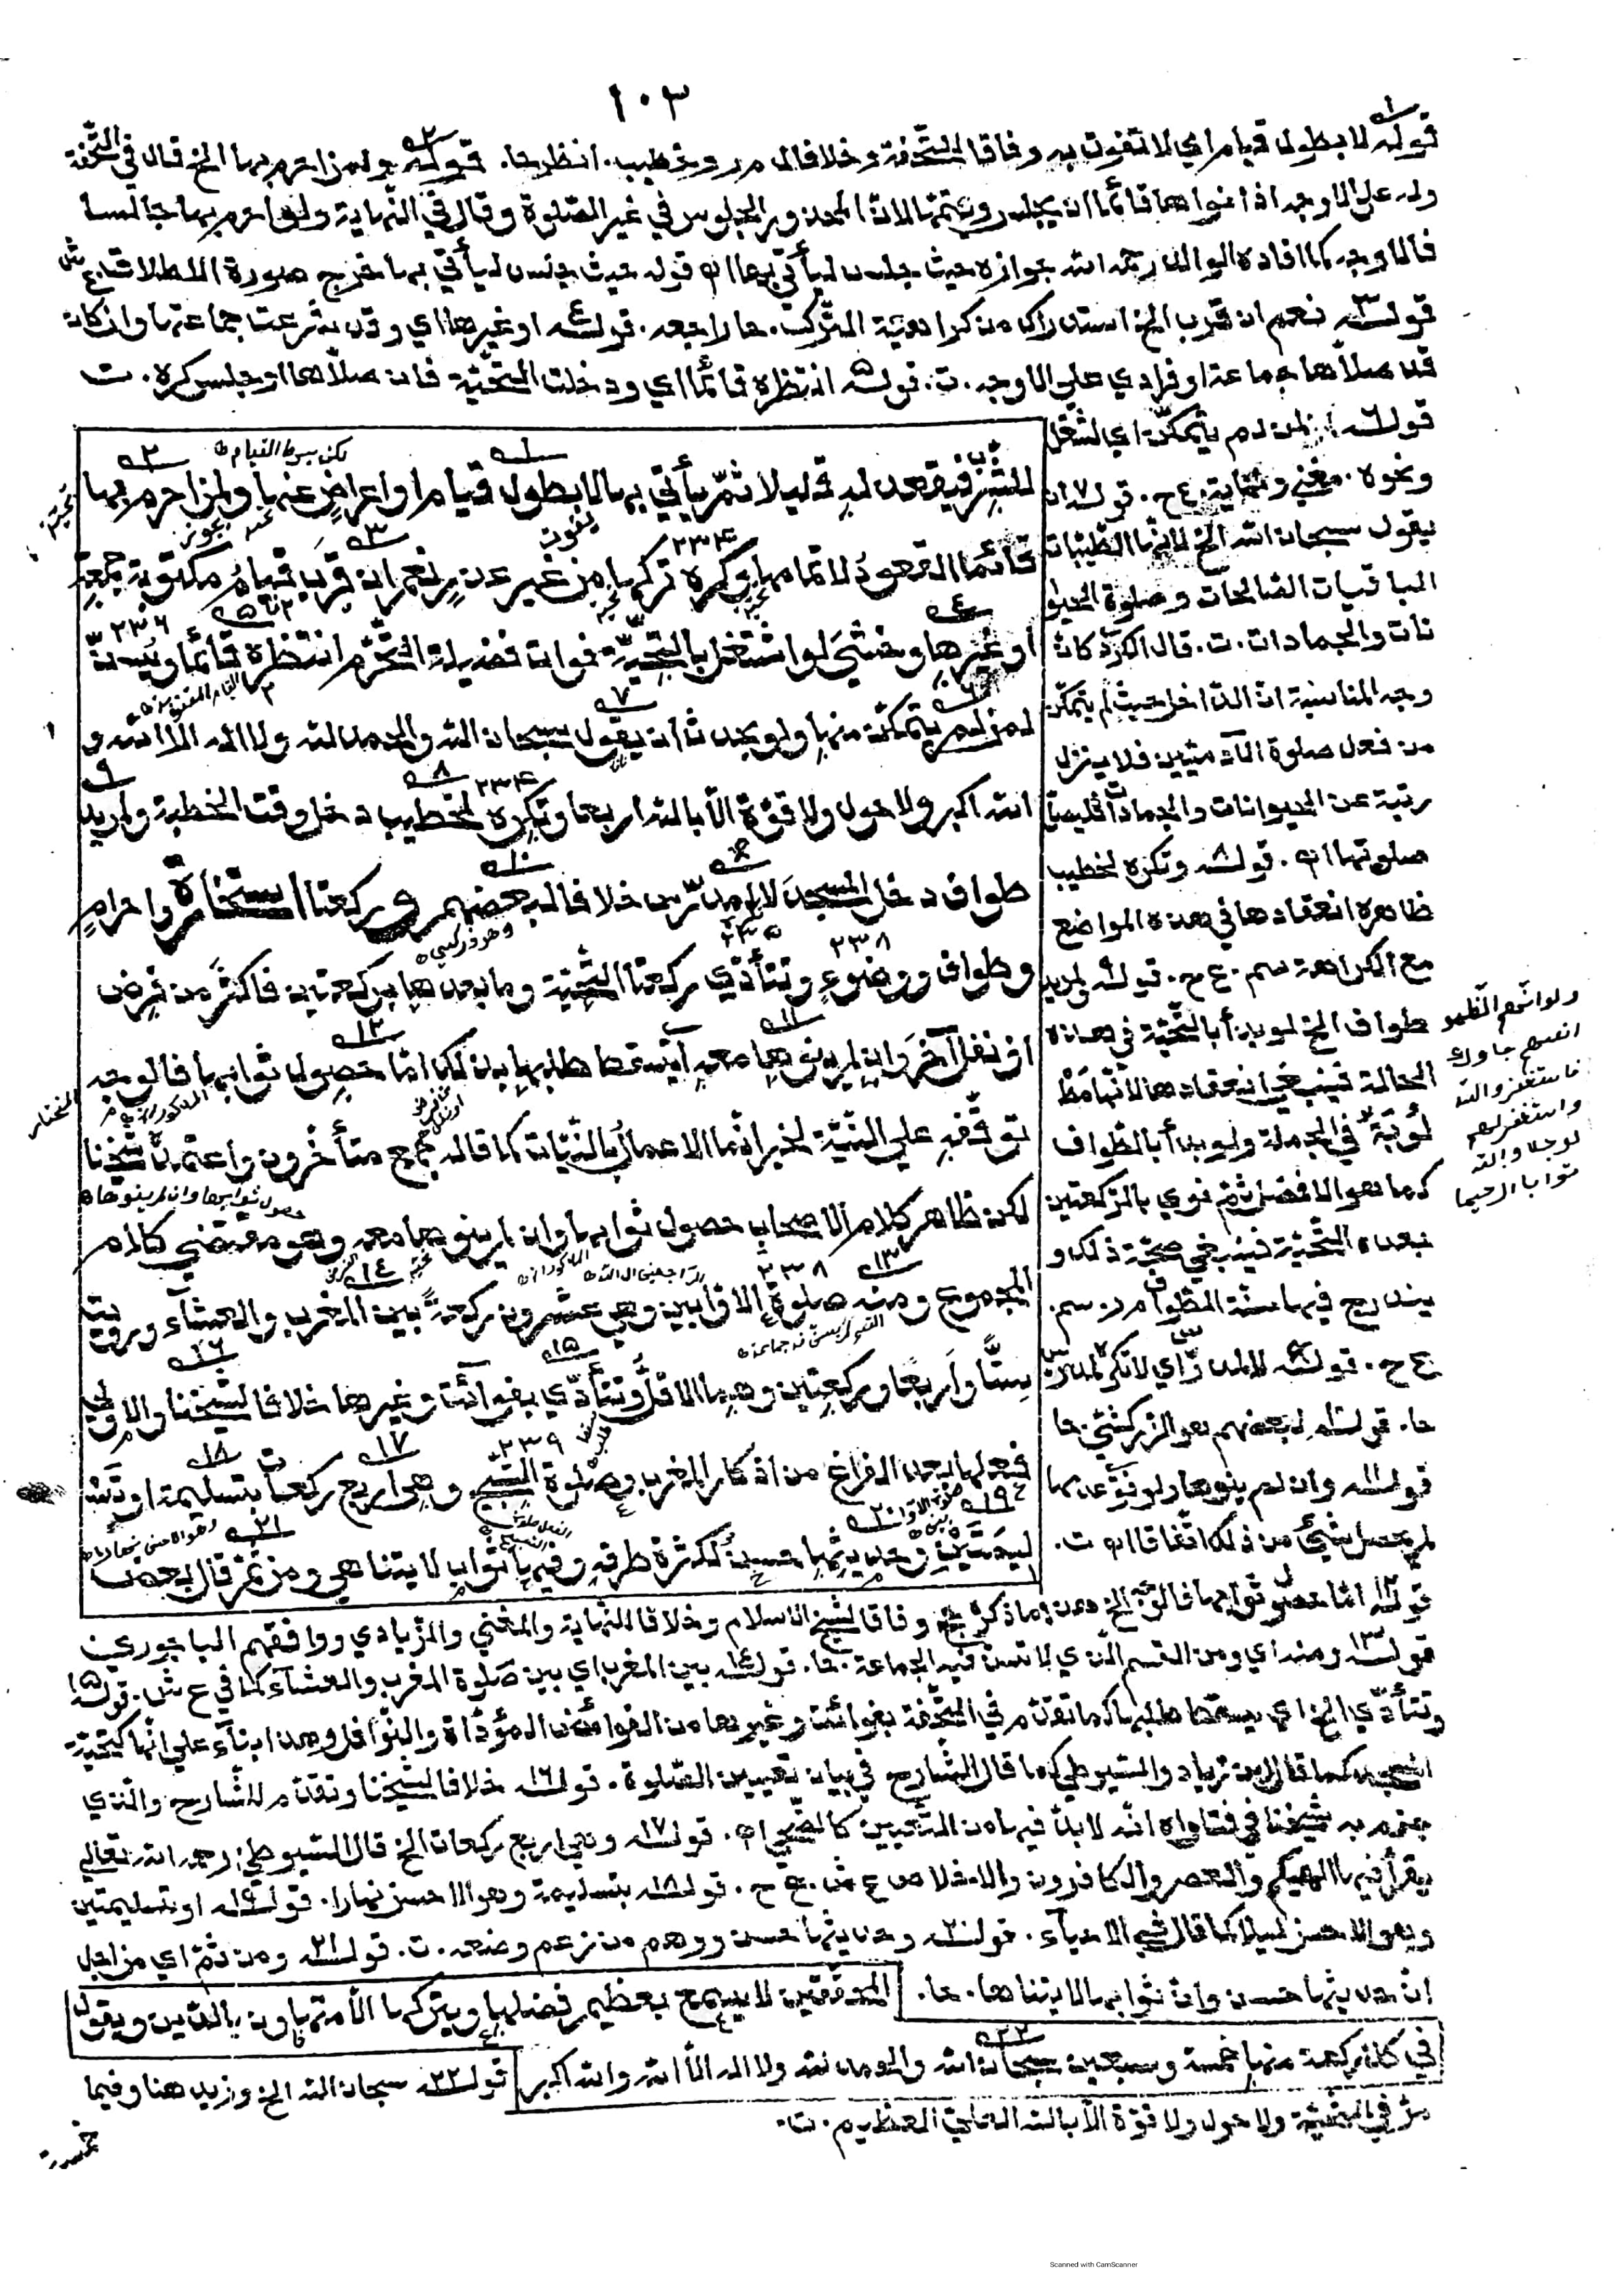 ١٠٣
قوله لا بطول قيام اي لا تفوت به وفاقا للتحفة وخلافا لـ مر وخطيب. انظرحا. قوله ولمن احرم بها الخ قال في التحفة
وله على الاوجه اذا نواها قائما ان يجلس ويتمها لان المحذور الجلوس في غير الصلوة وقال في النهاية ولو احرم بها جالسا
فالاوجه كما افاده الوالد رحمه الله جوازه حيث جلس ليأتي بها اه قوله حيث جلس ليأتي بها مخرج صورة الاطلاق ع ش
قوله نعم ان قرب الخ استدراك من كراهية الترك. حا راجعه. قوله او غيرها اي وقد شرعت جماعتها وان كان
قد صلاها جماعة او فرادي على الاوجه. ت. قوله انتظره قائما اي ودخلت التحية فان صلاها او جلس كره. ت
قوله لمن لم يتمكن اي لشغل
ونحوه. مغني ونهاية ع ح. قوله ان
يقول سبحان الله الخ لانها الطيبات
الباقيات الصالحات وصلوة الحيوا
نات والجمادات. ت. قال الكردي كان
وجه المناسبة ان الداخل حيث لم يتمكن
من فعل صلوة الآدميين فلا ينزل
رتبة عن الحيوانات والجمادات فليصل
صلوتها اه. قوله وتكره لخطيب
ظاهره انعقادها في هذه المواضع
مع الكراهة سم. ع ح. قوله لمريد
طواف الخ لو بدأ بالتحية في هذه
الحالة فينبغي انعقادها لانها مط
لوبة في الجملة ولو بدأ بالطواف
كما هو الافضل ثم نوي بالركعتين
بعده التحية فينبغي صحة ذلك و
يندرج فيها سنة الطواف م ر. سم.
ع ح. قوله لا لمدرس اي لا تكره لمدرس
حا. قوله لبعضهم هو الزركشي حا
قوله وان لم ينوها ولو نوي عدمها
لم يحصل شيء من ذلك اتفاقا اه ت.
ولو انهم اذ ظلموا
انفسهم جاوك
فاستغفروا الله
واستغفر لهم
لوجدوا الله
توابا رحيما
لكن بشرط القيام
للشرب فيقعد له قليلا ثم يأتي بها لا بطول قيام او اعراض عنها ولمن احرم بها
قائما القعود لاتمامها وكره تركها من غير عذر نعم ان قرب قيام مكتوبة جمعة
او غيرها وخشي لو اشتغل بالتحية فوات فضيلة التحرم انتظره قائما ويسن
لمن لم يتمكن منها ولو بحدث ان يقول سبحان الله والحمد لله ولا اله الا الله و
الله اكبر ولا حول ولا قوة الا بالله اربعا وتكره لخطيب دخل وقت الخطبة ولمريد
طواف دخل المسجد لا لمدرس خلافا لبعضهم وركعتا استخارة واحرام
وهو زركشي
وطواف ووضوء وتتأدي ركعتا التحية وما بعدها بركعتين فاكثر من فرض
او نفل آخر وان لم ينوها معه اي يسقط طلبها بذلك اما حصول ثوابها فالوجه
توقفه علي النية لخبر انما الاعمال بالنيات كما قاله جمع متأخرون واعتمده شيخنا
حصول ثوابها وان لم ينوها
لكن ظاهر كلام الاصحاب حصول ثوابها وان لم ينوها معه وهو مقتضي كلام
المجموع ومنه صلوة الاوابين وهي عشرون ركعة بين المغرب والعشاء ورويت
ستا واربعا وركعتين وهما الاقل وتتأدي بفوائت وغيرها خلافا لشيخنا والاولي
فعلها بعد الفراغ من اذكار المغرب وصلوة التسبيح وهي اربع ركعات بتسليمة او تسـ
ليمتين وحديثها حسن لكثرة طرقه وفيها ثواب لا يتناهي ومن ثم قال بعض
قوله اما حصول ثوابها فالوجه الخ هذا ما ذكره حج وفاقا لشيخ الاسلام وخلافا للنهاية والمغني والزيادي ووافقهم الباجوري
قوله ومنه اي ومن القسم الذي لا تسن فيه الجماعة. حا. قوله بين المغرب اي بين صلوة المغرب والعشاء كما في ع ش. قوله
وتتأدي الخ اي يسقط طلبها كما تقدم في التحفة بفوائت وغيرها من الفرائض المؤداة والنوافل وهذا بناء علي انها كتحية
المسجد كما قال ابن زياد والسيوطي كما قال الشارح في بيان تعيين الصلوة. قوله خلافا لشيخنا وتقدم للشارح والذي
جزم به شيخنا في فتاواه انه لا بد فيها من التعيين كالضحي اه. قوله وهي اربع ركعات الخ قال السيوطي رحمه الله تعالي
يقرأ فيها الهيكم والعصر والكافرون والاخلاص ع ش. ع ح. قوله بتسليمة وهو الاحسن نهارا. قوله او بتسليمتين
وهو الاحسن ليلا كما قال في الاحياء. قوله وحديثها حسن ووهم من زعم وضعه. ت. قوله ومن ثم اي من اجل
ان حديثها حسن وان ثوابها لا يتناها. حا.
المحققين لا يسمع بعظيم فضلها ويتركها الا متهاون بالدين ويقول
في كل ركعة منها خمسة وسبعين سبحان الله والحمد لله ولا اله الا الله والله اكبر
قوله سبحان الله الخ وزيد هنا وفيما
مر في التحية ولا حول ولا قوة الا بالله العلي العظيم. ت.
خمسة
Scanned with CamScanner